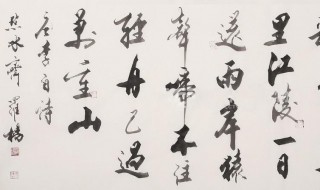 里江陵一日
還兩岸猿
聲啼不住
輕舟已過
萬重山
唐李白詩
水齋羅楊